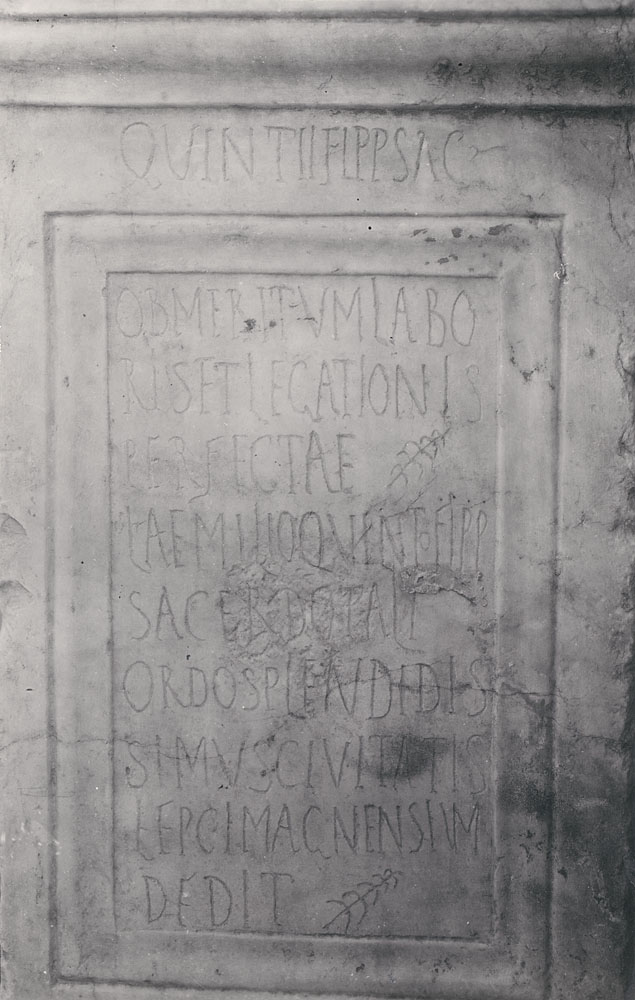 QVINTIIFLPPSAC
OBMERITVMLABO
RISETLEGATIONIS
PERFECTAE
TAEMILIOQVINTOFLPP
SACERDOTALI
ORDOSPLENDIDIS
SIMVSCIVITATIS
LEPCIMAGNENSIVM
DEDIT